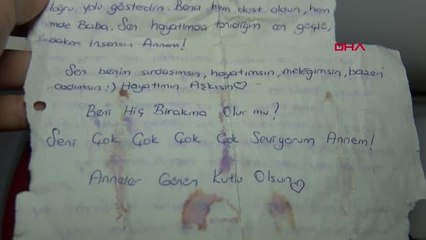 DHA
doğru yolu gösterdin. Bana hem dost oldun, hem
de Baba. Sen hayatımda tanıdığım en güçlü,
insansın Annem!
Sen benim sırdaşımsın, hayatımsın, meleğimsin, bazen
cadımsın :) Hayatımın Aşkısın♡
Beni Hiç Bırakma Olur mu?
Seni Çok Çok Çok Çok Seviyorum Annem!
Anneler Günün Kutlu Olsun♡